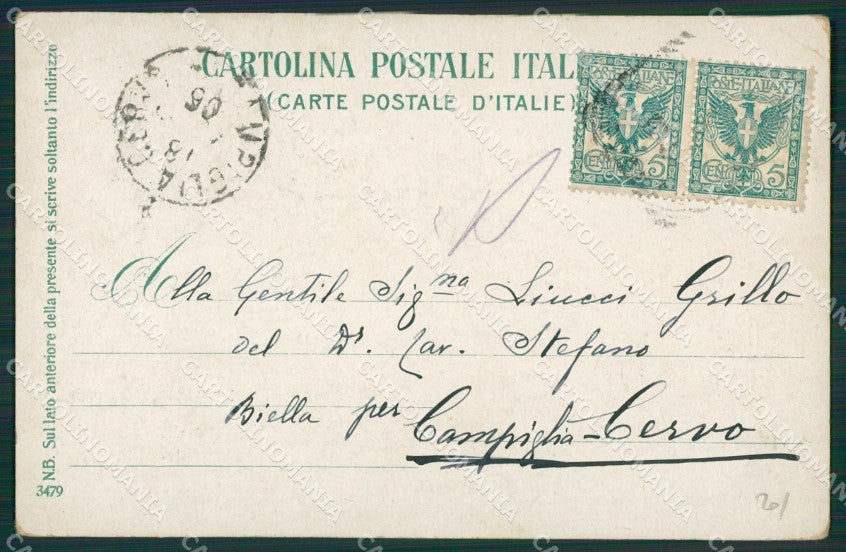 CARTOLINA POSTALE ITAL
(CARTE POSTALE D'ITALIE)
POSTE ITALIANE
CENT. 5
POSTE ITALIANE
CENT. 5
05
18
Alla Gentile Signa Liucci Grillo
del Dr. Cav. Stefano
Biella per Campiglia-Cervo
N.B. Sul lato anteriore della presente si scrive soltanto l'indirizzo
3479
CARTOLINOMANIA